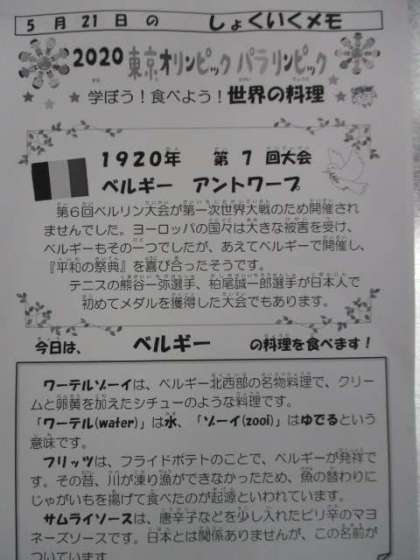 5月21日の しょくいくメモ
2020 東京オリンピック パラリンピック
学ぼう！食べよう！世界の料理
1920年 第7回大会
ベルギー アントワープ
第6回ベルリン大会が第一次世界大戦のため開催され
ませんでした。ヨーロッパの国々は大きな被害を受け、
ベルギーもその一つでしたが、あえてベルギーで開催し、
『平和の祭典』を喜び合ったそうです。
テニスの熊谷一弥選手、柏尾誠一郎選手が日本人で
初めてメダルを獲得した大会でもあります。
今日は、 ベルギー の料理を食べます！
ワーテルゾーイは、ベルギー北西部の名物料理で、クリー
ムと卵黄を加えたシチューのような料理です。
「ワーテル(water)」は水、「ゾーイ(zooi)」はゆでるという
意味です。
フリッツは、フライドポテトのことで、ベルギーが発祥で
す。その昔、川が凍り漁ができなかったため、魚の替わりに
じゃがいもを揚げて食べたのが起源といわれています。
サムライソースは、唐辛子などを少し入れたピリ辛のマヨ
ネーズソースです。日本とは関係ありませんが、この名前が
ついています